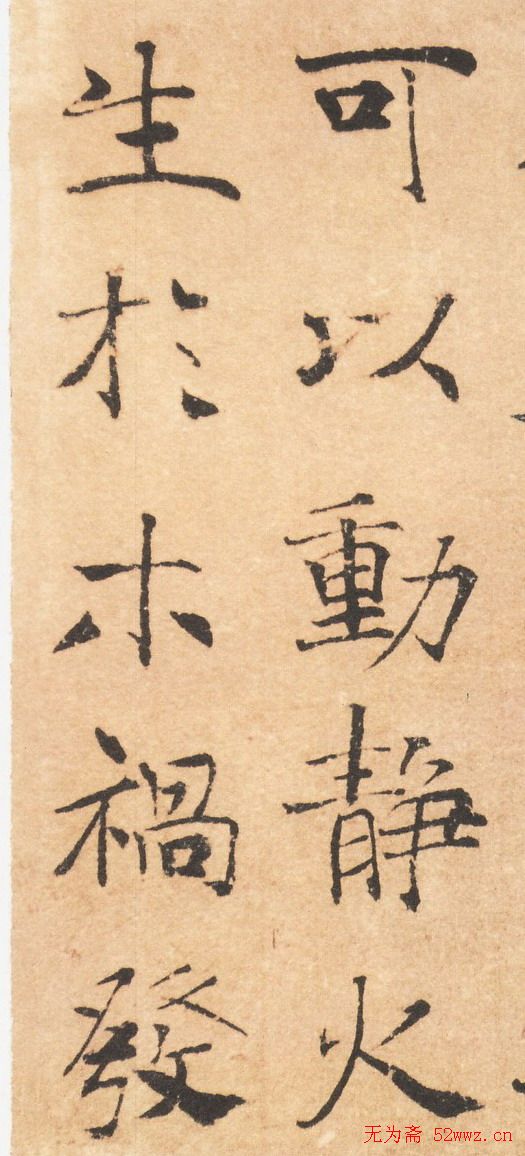 可以動静火
生於木禍發
无为斋 52wwz.cn